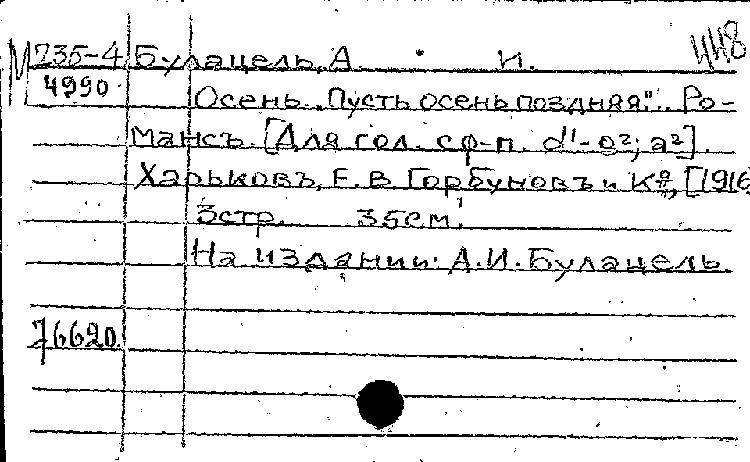 448
М 235-4 Булацель, А. И.
4990
Осень „Пусть осень поздняя". Ро-
мансъ. [Для гол. с ф-п. d¹-g²; a²].
Харьковъ, Е. В. Горбуновъ и Кº, [1916
3 стр. 35 см.
На издании: А. И. Булацель.
76620.